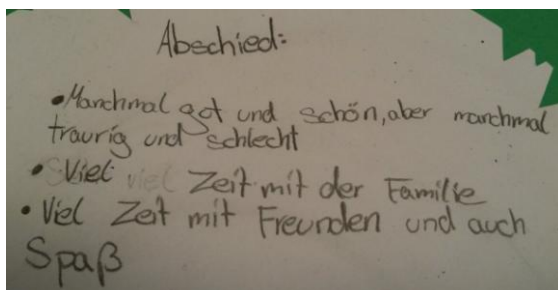 Abschied:
• Manchmal got und schön, aber manchmal
traurig und schlecht
• Viel viel Zeit mit der Familie
• Viel Zeit mit Freunden und auch
Spaß